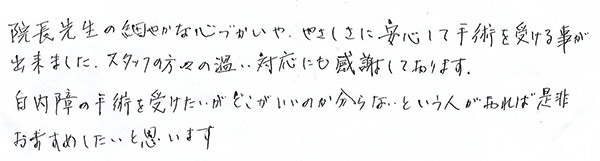 院長先生の細やかな心づかいや、やさしさに安心して手術を受ける事が
出来ました。スタッフの方々の温い対応にも感謝しております。
白内障の手術を受けたいがどこがいいのか分らないという人があれば是非
おすすめしたいと思います